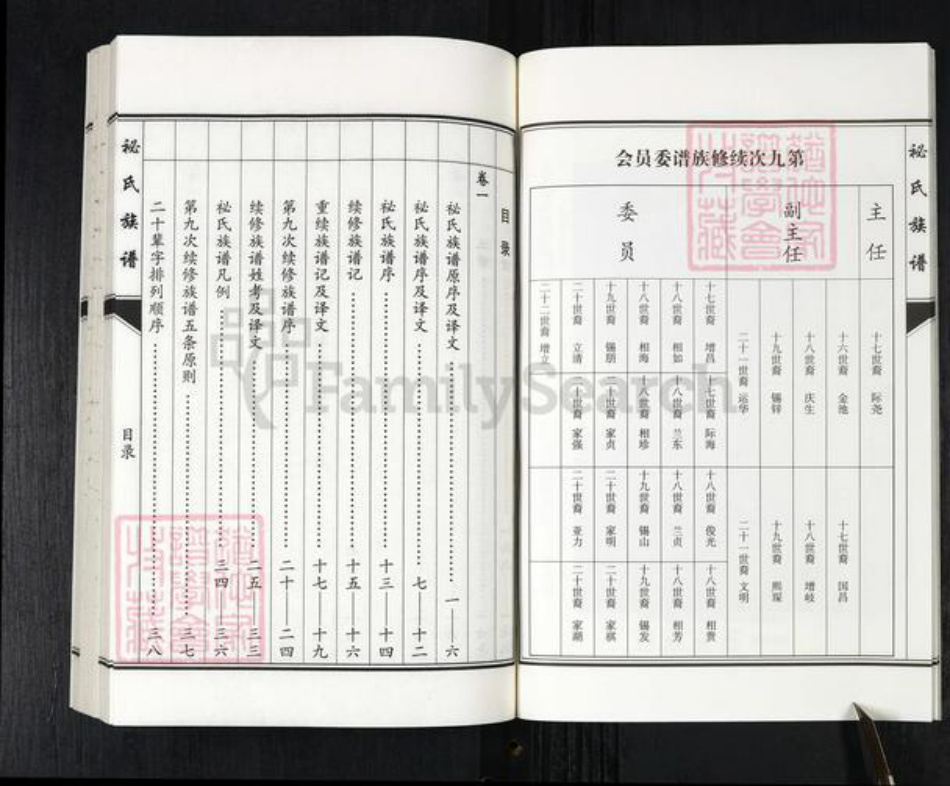 祕氏族谱
第九次续修族谱委员会
主任
十七世裔 际尧
副主任
十六世裔 金池
十七世裔 国昌
十八世裔 庆生
十八世裔 增岐
十九世裔 锡锌
十九世裔 熙琛
二十一世裔 运华
二十一世裔 文明
委员
十七世裔 增昌
十七世裔 际海
十八世裔 俊光
十八世裔 相贵
十八世裔 相如
十八世裔 兰东
十八世裔 兰贞
十八世裔 相芳
十八世裔 相海
十八世裔 相珍
十九世裔 锡山
十九世裔 锡发
十九世裔 锡朋
二十世裔 家贞
二十世裔 家明
二十世裔 家棋
二十世裔 立清
二十世裔 家强
二十世裔 亚力
二十世裔 家湖
二十二世裔 增立
目录
卷一
祕氏族谱原序及译文 一——六
祕氏族谱序及译文 七——十二
祕氏族谱序 十三——十四
续修族谱记 十五——十六
重续族谱记及译文 十七——十九
第九次续修族谱序 二十——二四
续修族谱姓考及译文 二五——三三
祕氏族谱凡例 三四——三六
第九次续修族谱五条原则 三七
二十辈字排列顺序 三八
祕氏族谱
目录
FamilySearch